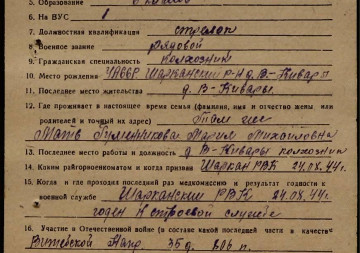 5. Образование
6. На ВУС 1
7. Должностная квалификация стрелок
8. Военное звание рядовой
9. Гражданская специальность колхозник
10. Место рождения УАССР Шарканский р-н д. В-Кивары
11. Последнее место жительства д. В-Кивары
12. Где проживает в настоящее время семья (фамилия, имя и отчество жены или
родителей и точный их адрес) Там же
Мать Мария Михайловна
13. Последнее место работы и должность д. В-Кивары колхозник
14. Каким райгорвоенкоматом и когда призван Шаркан РВК 24.08.44 г.
15. Когда и где проходил последний раз медкомиссию и результат годности к
военной службе Шарканский РВК 24.08.44 г.
годен к строевой службе
16. Участие в Отечественной войне (в составе какой последней части в качестве
35 д.